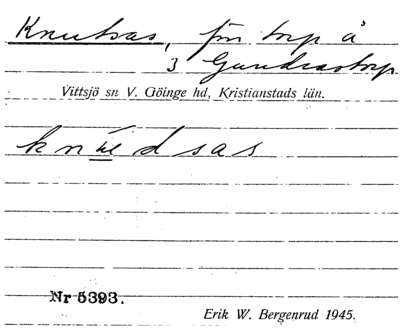 Knutsas, fön torp å
3 Gundrastorp
Vittsjö sn V. Göinge hd, Kristianstads län.
knúdsas
Nr 5393.
Erik W. Bergenrud 1945.